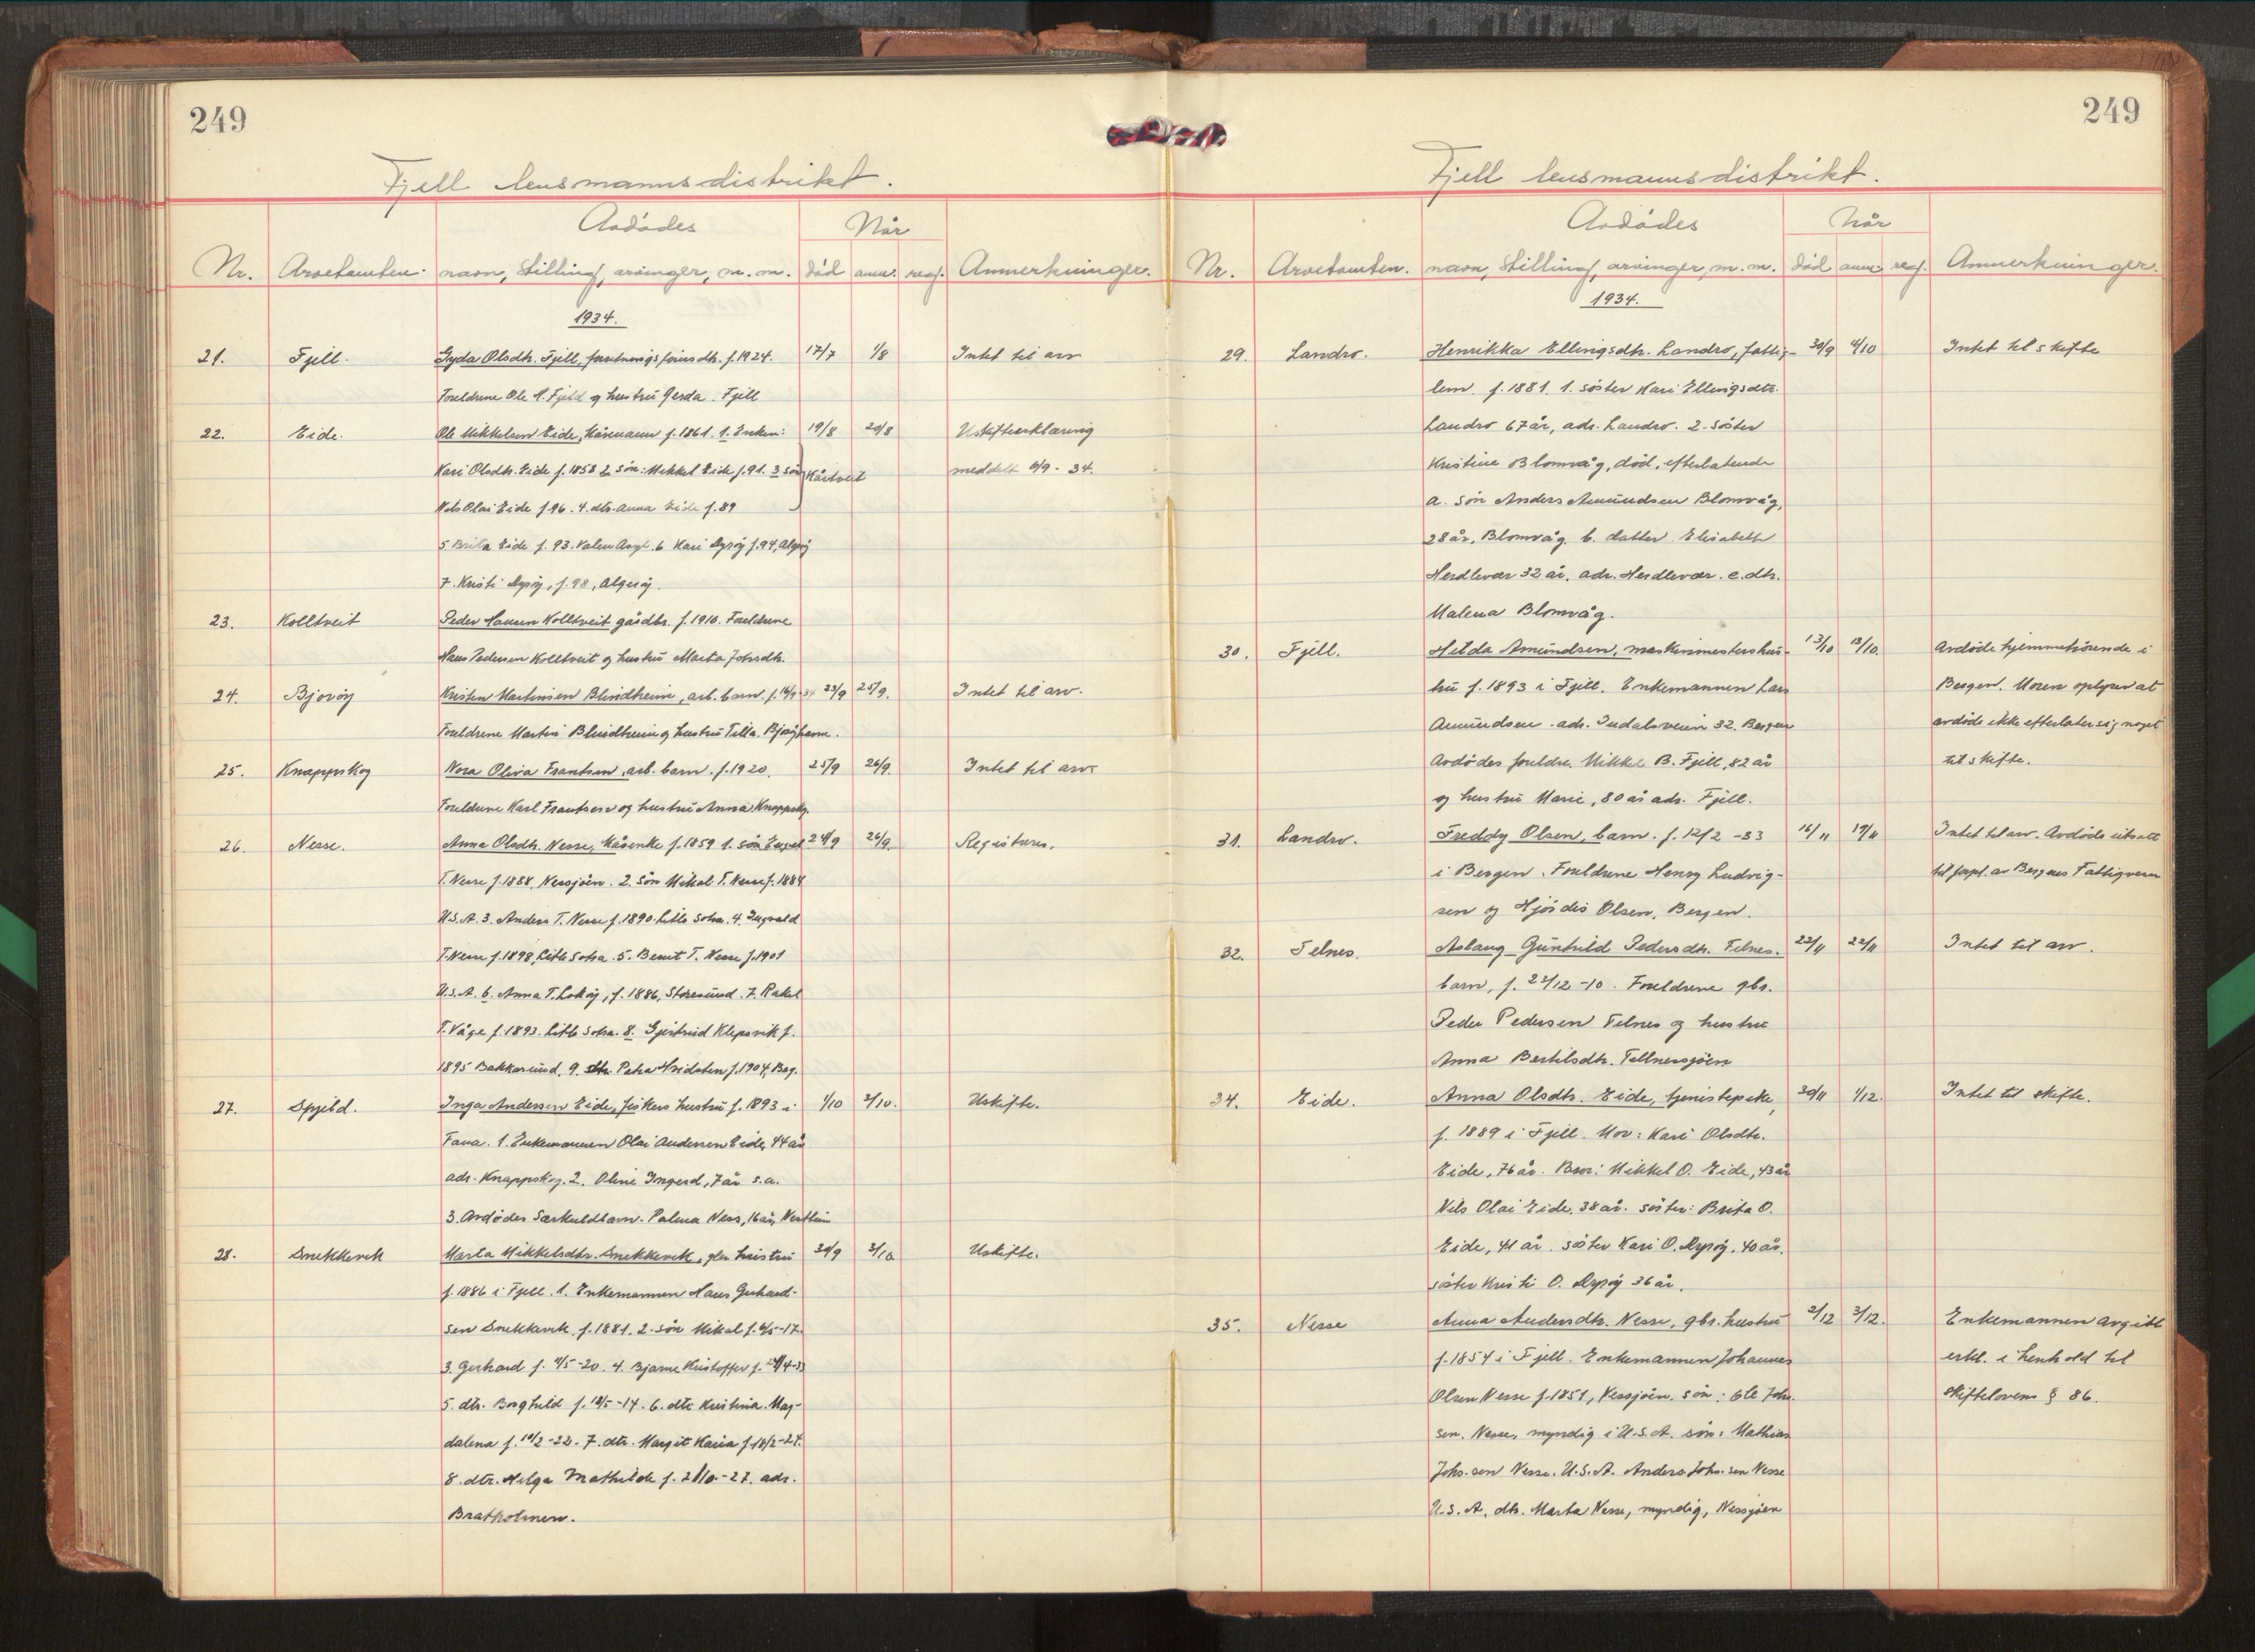 249
Fjell lensmannsdistrikt.
Avdödes
Når
Nr. Arvetomten. navn, stilling, arvinger, m.m. död anm. reg. Anmerkninger.
1934.
21. Fjell. Gyda Olsdtr. Fjell, f. 1924. 17/7 1/8 Intet til arv
Foreldrene Ole Fjeld og hustru Gerda Fjell
22. Eide. Ole Mikkelsen Eide, kårmann f. 1861. 1. Enken: 19/8 20/8 Uskifteerklæring
Kari Olsdtr. Eide f. 1858 2 sön: Mikkel Eide f. 91. 3 sön Kårtveit meddelt 6/9-34.
Nils Olai Eide f. 96. 4. dtr. Anna Eide f. 89
5. Brita Eide f. 93. 6 Kari Arpöy f. 94, Algröy
7. Kristi Arpöy, f. 98, Algröy.
23. Kolltveit Peder Hansen Kolltveit gårdbr. f. 1910. Foreldrene
Hans Pedersen Kolltveit og hustru Marta Johsdtr.
24. Bjoröy Kristen Martinsen Blindheim, arb. barn. 23/9 25/9. Intet til arv.
Foreldrene Martin Blindheim og hustru Tilla. Bjoröyhavn.
25. Knappskog Nora Oliva Frantsen, arb. barn. f. 1920. 25/9 26/9. Intet til arv
Foreldrene Karl Frantsen og hustru Anna Knappskog.
26. Nesse. Anna Olsdtr. Nesse, kårenke f. 1859 1. sön 24/9 26/9. Registreres.
T. Nesse f. 1888, Nessjöen. 2. Sön Mikal T. Nesse f. 1884
U.S.A. 3. Anders T. Nesse f. 1890. Litle Sotra. 4. Ingvald
T. Nesse f. 1898, Litle Sotra. 5. Bernt T. Nesse f. 1901
U.S.A. 6. Anna T. Loköy, f. 1886, Storesund. 7. Rakel
T. Våge f. 1893. Litle Sotra. 8. Gjertrud Klepsvik f.
1895 Bakkasund. 9. dtr. Petra f. 1904, Berg.
27. Spjeld. Inga Andersen Eide, fiskers hustru f. 1893 i 1/10 2/10. Uskifte.
Fana. 1. Enkemannen Olai Andersen Eide, 44 år
adr. Knappskog. 2. Oline Ingerd, 7 år s.a.
3. Avdödes særkuldbarn. Palma Ness, 16 år,
28. Snekkevik Marta Mikkelsdtr. Snekkevik, hustru 30/9 2/10 Uskifte.
f. 1886 i Fjell. 1. Enkemannen Hans Gerhard-
sen Snekkevik, f. 1881. 2. sön Mikal f. 6/5-17.
3. Gerhard f. 4/5-20. 4. Bjarne Kristoffer f.
5. dtr. Borghild f. 18/5-14. 6. dtr Kristina Mag-
dalena f. 10/2-22. 7. dtr. Margit Karia f. 18/2-24.
8. dtr. Helga Mathilde f. 2/10-27. adr.
Bratholmen.
249
Fjell lensmannsdistrikt.
Avdödes
Når
Nr. Arvetomten. navn, stilling, arvinger, m.m. död anm. reg. Anmerkninger.
1934.
29. Landro. Henrikka Ellingsdtr. Landro, fattig- 30/9 4/10 Intet til skifte
lem. f. 1881. 1. söster Kari Ellingsdtr.
Landro 67 år, adr. Landro. 2. Söster
Kristine Blomvåg, död, efterlatende
a. sön Anders Amundsen Blomvåg,
28 år, Blomvåg. b. datter Elisabeth
Herdlevær 32 år. adr. Herdlevær. c. dtr.
Malena Blomvåg.
30. Fjell. Hilda Amundsen, maskinmesters hus- 13/10 18/10. Avdöde hjemmehörende i
tru f. 1893 i Fjell. Enkemannen Lars Bergen. Moren oplyser at
Amundsen. adr. Indalsveien 32. Bergen avdöde ikke efterlater sig noget
Avdödes foreldre. Mikkel B. Fjell, 82 år til skifte.
og hustru Marie, 80 år adr. Fjell.
31. Landro. Freddy Olsen, barn. f. 12/2-33 16/11 19/11 Intet til arv. Avdöde utsatt
i Bergen. Foreldrene Henry Ludvig- til forpl. av Bergens Fattigvesen
sen og Hjördis Olsen, Bergen.
32. Telnes. Aslaug Gunhild Pedersdtr. Telnes. 22/11 22/11 Intet til arv.
barn, f. 23/12-10. Foreldrene gbr.
Peder Pedersen Telnes og hustru
Anna Bertilsdtr. Tellnessjöen
34. Eide. Anna Olsdtr. Eide, tjenistepike, 30/11 1/12. Intet til skifte.
f. 1889 i Fjell. Mor: Kari Olsdtr.
Eide, 76 år. Bror: Mikkel O. Eide, 43 år
Nils Olai Eide, 38 år. söster: Brita O.
Eide, 41 år. söster Kari O. Arpöy. 40 år.
söster Kristi O. Arpöy 36 år.
35. Nesse Anna Andersdtr. Nesse, gbr. hustru 2/12 3/12. Enkemannen avgitt
f. 1854 i Fjell. Enkemannen Johannes erkl. i henhold til
Olsen Nesse f. 1851, Nessjöen. sön: Ole Johs. skiftelovens § 86.
sen. Nesse, myndig i U.S.A. sön: Mathias
Johs. sen Nesse. U.S.A. Anders Johs. sen Nesse
U.S.A. dtr. Marta Nesse, myndig, Nessjöen